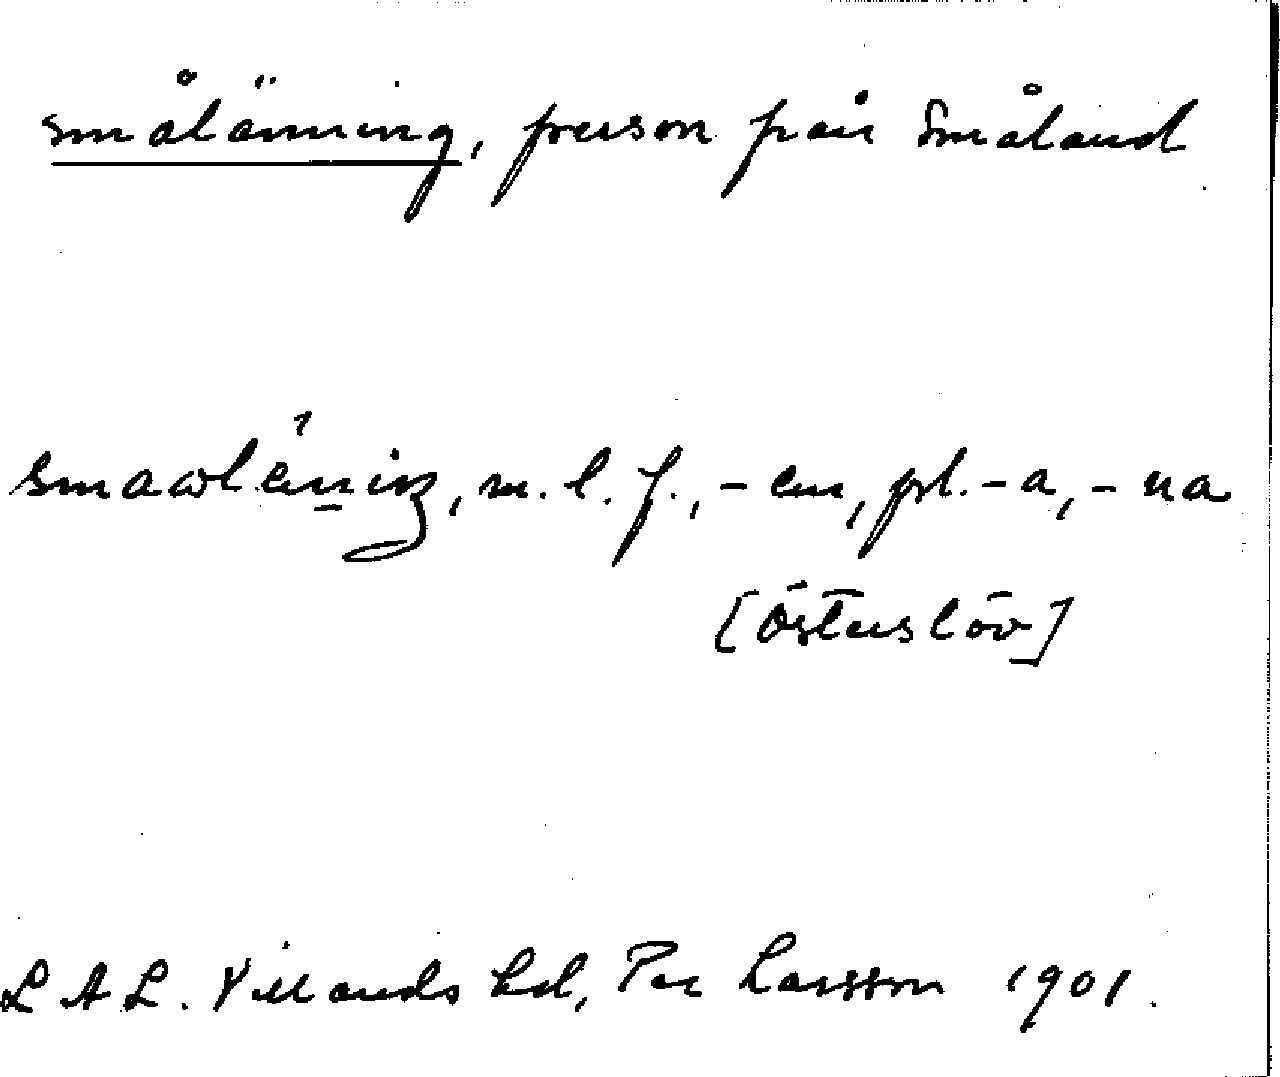 smålänning, person från Småland
smaωlä́n̲iŋ, m. l. f., -en, pl. -a, -na
[Österslöv]
L A L. Villands hd, Per Larsson 1901.